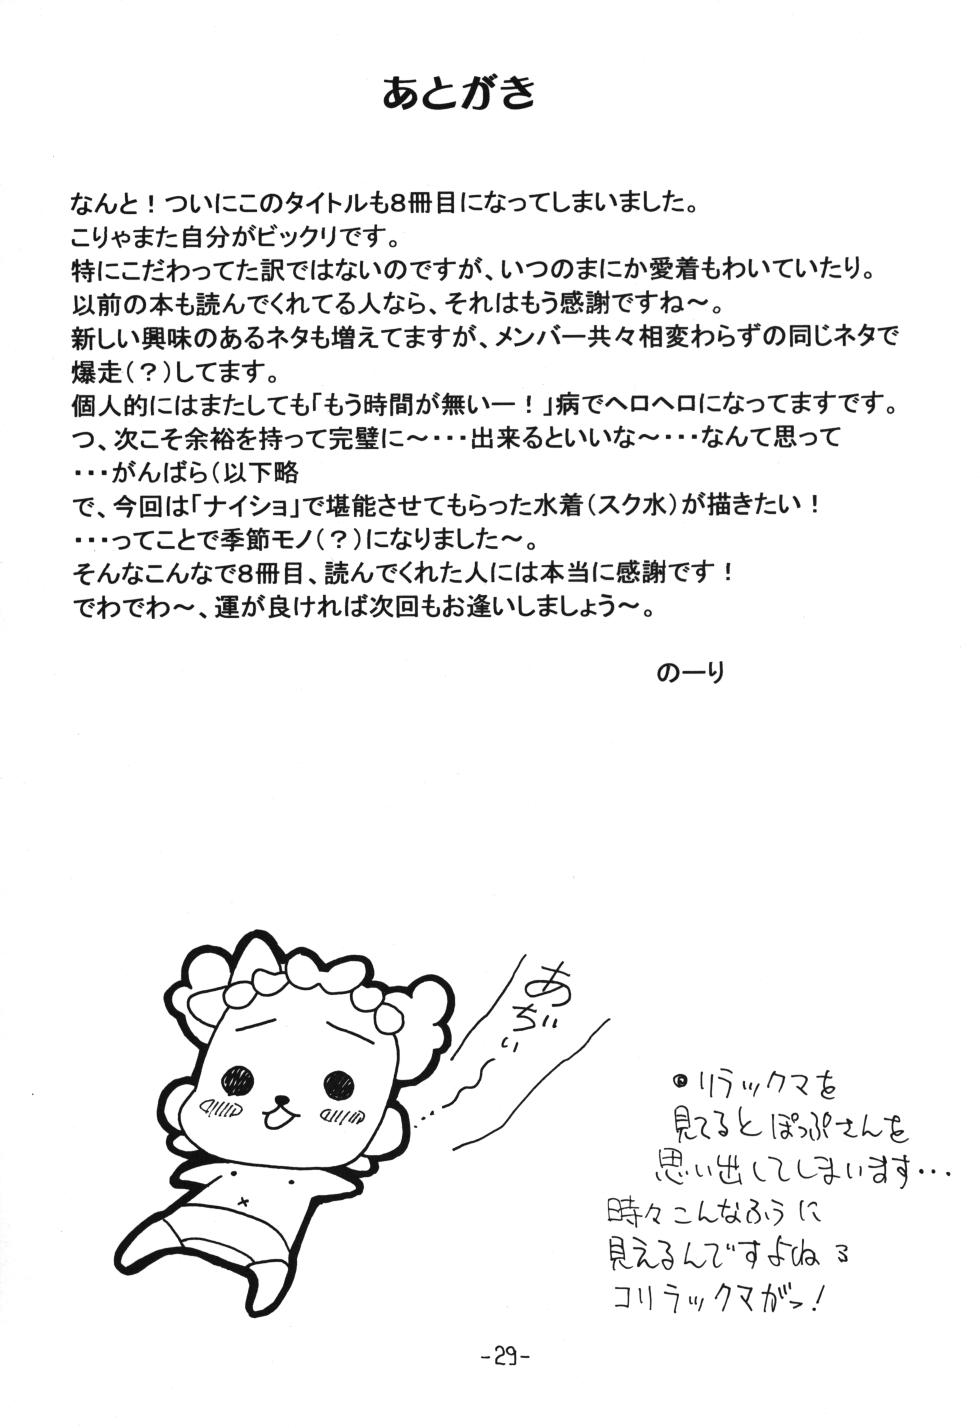 あとがき
なんと！ついにこのタイトルも８冊目になってしまいました。
こりゃまた自分がビックリです。
特にこだわってた訳ではないのですが、いつのまにか愛着もわいていたり。
以前の本も読んでくれてる人なら、それはもう感謝ですね～。
新しい興味のあるネタも増えてますが、メンバー共々相変わらずの同じネタで
爆走（？）してます。
個人的にはまたしても「もう時間が無いー！」病でヘロヘロになってますです。
つ、次こそ余裕を持って完璧に～・・・出来るといいな～・・・なんて思って
・・・がんばら（以下略
で、今回は「ナイショ」で堪能させてもらった水着（スク水）が描きたい！
・・・ってことで季節モノ（？）になりました～。
そんなこんなで８冊目、読んでくれた人には本当に感謝です！
でわでわ～、運が良ければ次回もお逢いしましょう～。
のーり
あぢぃぃ
リラックマを
見てるとぽっぷさんを
思い出してしまいます・・・
時々こんなふうに
見えるんですよね
コリラックマがっ！
-29-